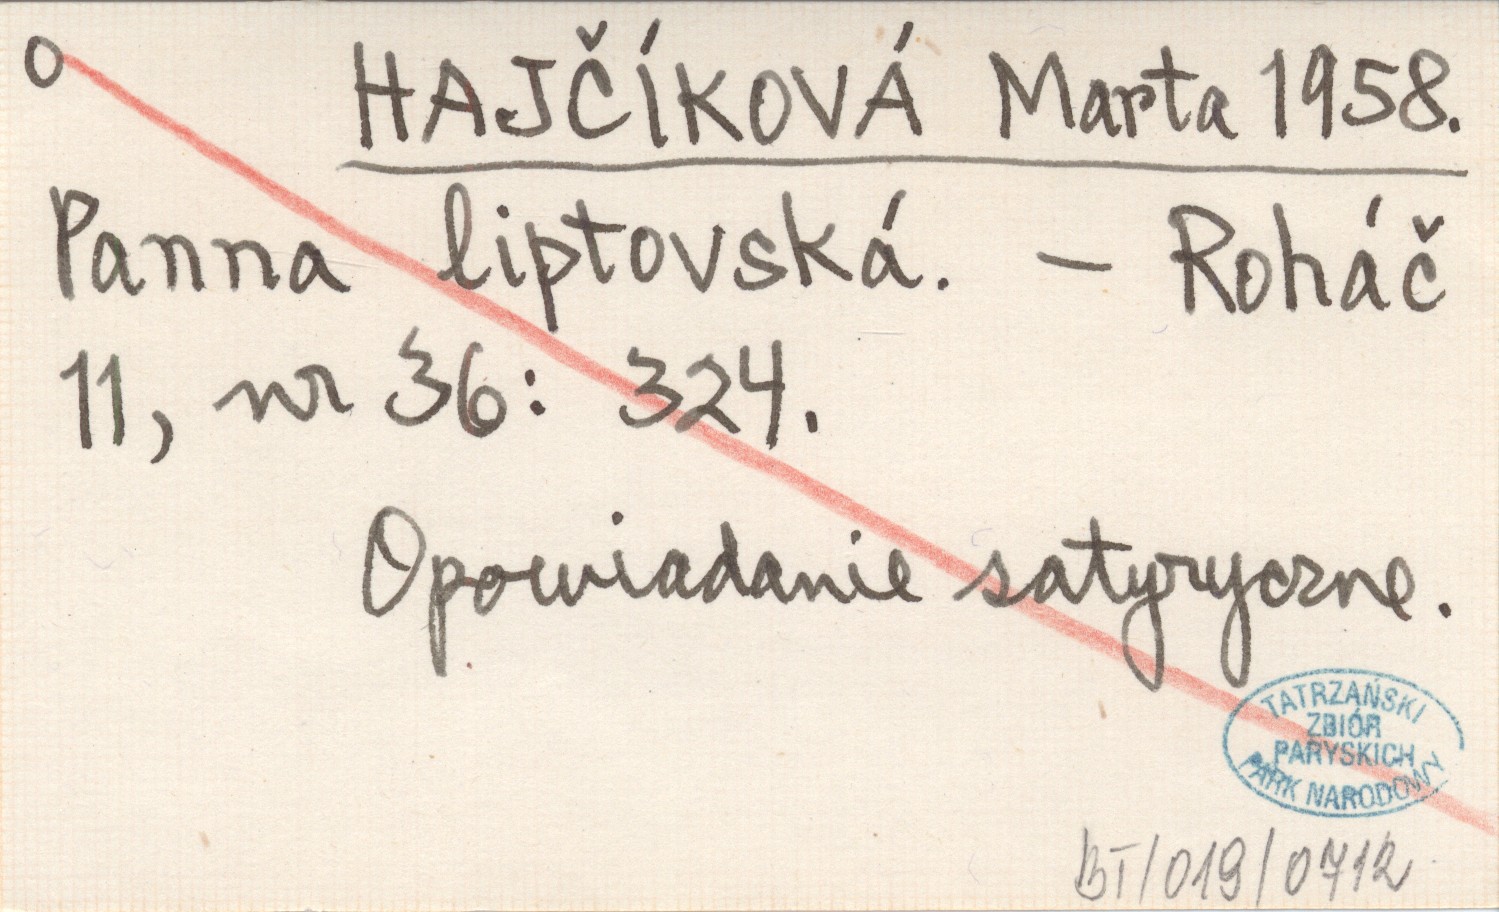 O HAJČÍKOVÁ Marta 1958.
Panna liptovská. – Roháč
11, nr 36: 324.
Opowiadanie satyryczne.
TATRZAŃSKI
ZBIÓR
PARYSKICH
PARK NARODOWY
BT/019/0712